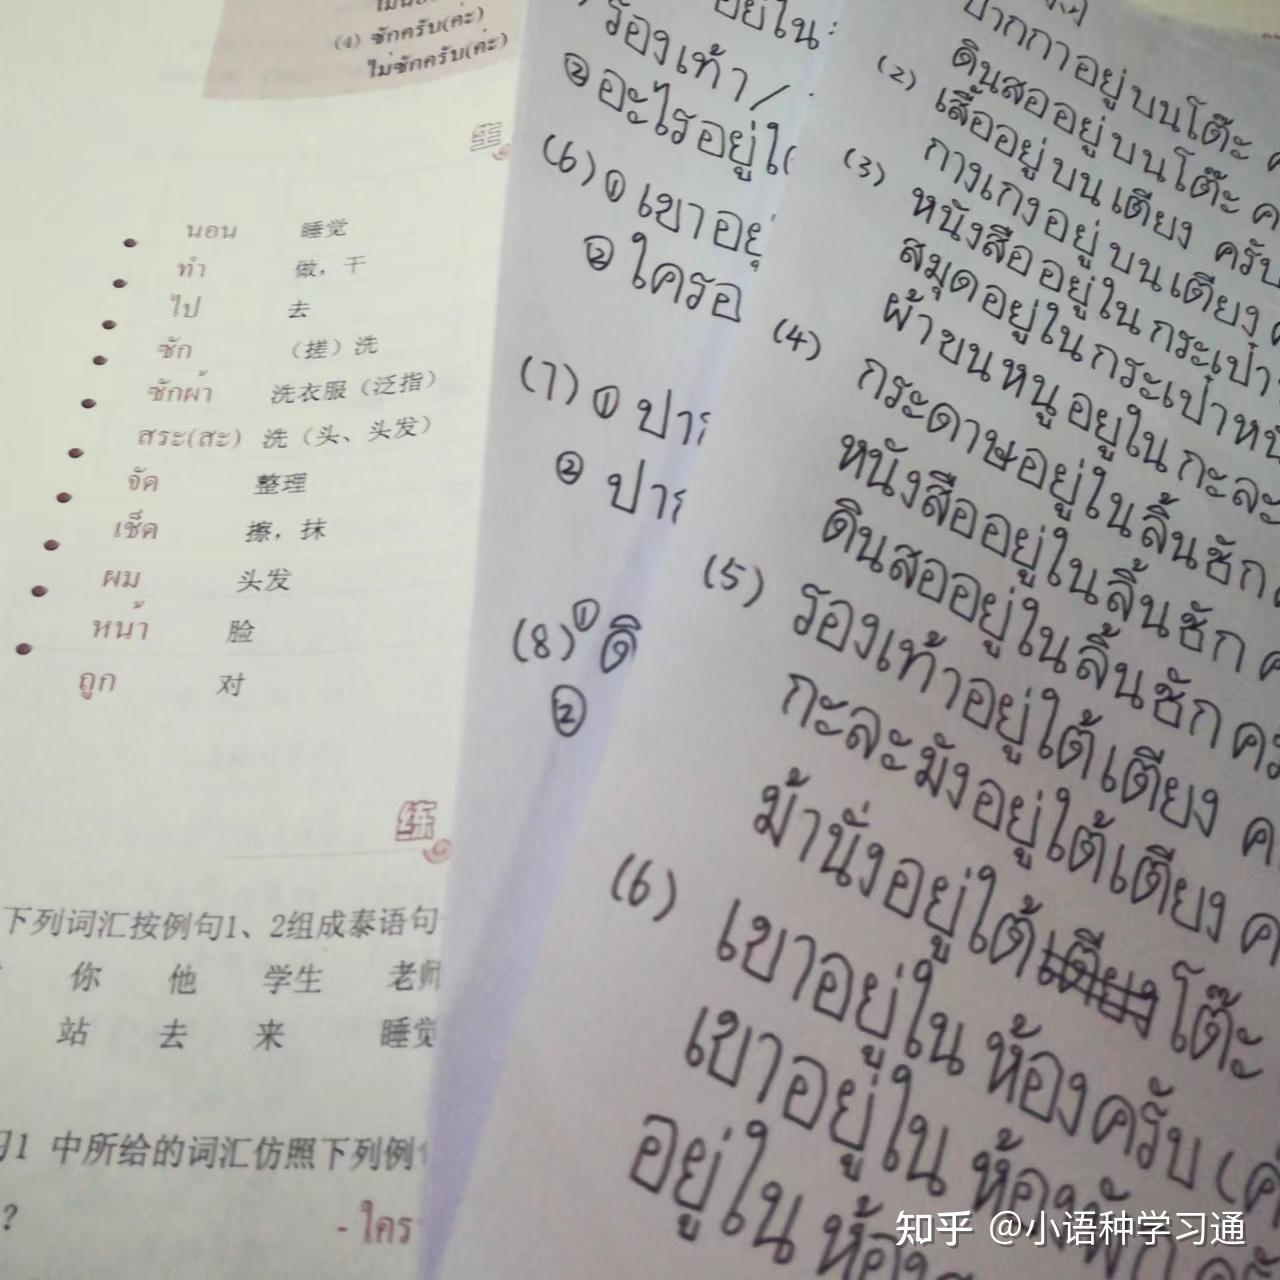 (4) ซักครับ(ค่ะ)
ไม่ซักครับ(ค่ะ)
นอน 睡觉
ทำ 做，干
ไป 去
ซัก （搓）洗
ซักผ้า 洗衣服（泛指）
สระ(สะ) 洗（头、头发）
จัด 整理
เช็ด 擦，抹
ผม 头发
หน้า 脸
ถูก 对
练
下列词汇按例句1、2组成泰语句
你 他 学生 老师
站 去 来 睡觉
1 中所给的词汇仿照下列例
?
- ใคร
อยู่ใน
รองเท้า /
② อะไรอยู่ใ
(6) ① เขาอยู่
② ใครอ
(7) ① ปาก
② ปาก
(8) ① ดิ
②
ปากกาอยู่บนโต๊ะ
ดินสออยู่บนโต๊ะ ค
(2) เสื้ออยู่บนเตียง ครับ
กางเกงอยู่บนเตียง
(3) หนังสืออยู่ในกระเป๋า
สมุดอยู่ในกระเป๋าหนั
ผ้าขนหนูอยู่ในกะละ
(4) กระดาษอยู่ในลิ้นชัก
หนังสืออยู่ในลิ้นชัก ค
ดินสออยู่ในลิ้นชัก ครั
(5) รองเท้าอยู่ใต้เตียง ค
กะละมังอยู่ใต้เตียง ค
ม้านั่งอยู่ใต้เตียงโต๊ะ
(6) เขาอยู่ใน ห้องครับ (ค่
เขาอยู่ใน ห้องพัก ครั
อยู่ใน ห้อง
知乎 @小语种学习通